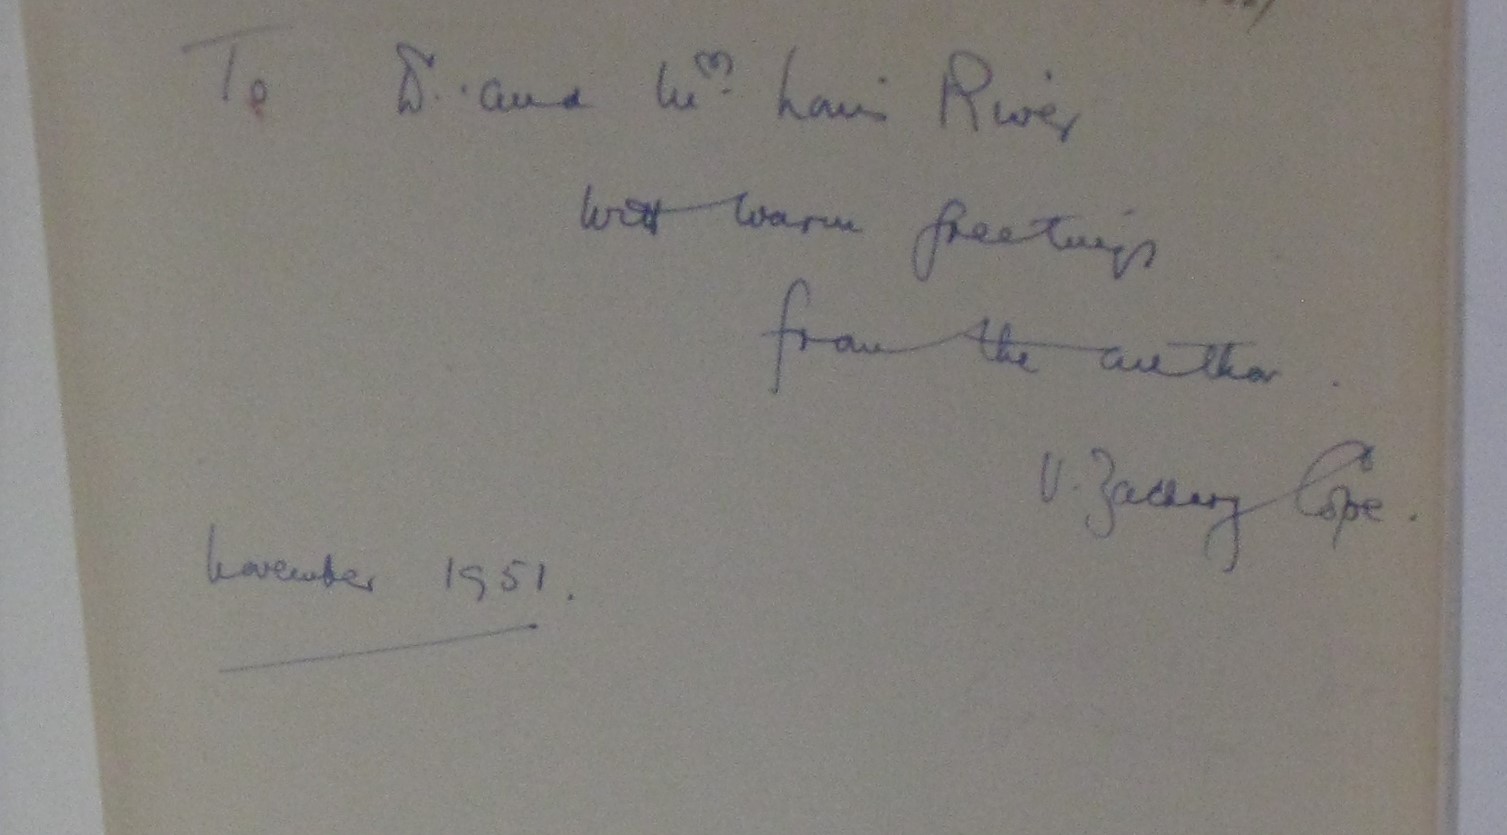 To Dr. and Mrs. Louis River
with warm greetings
from the author.
V. Zachary Cope.
November 1951.